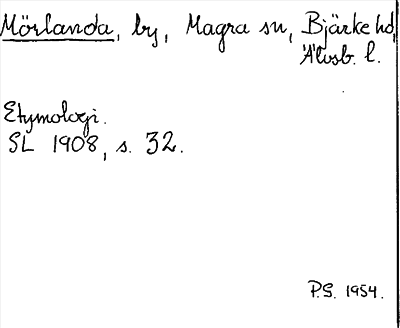 Mörlanda, by, Magra sn, Bjärke hd,
Älvsb. l.
Etymologi.
SL 1908, s. 32.
P.S. 1954.